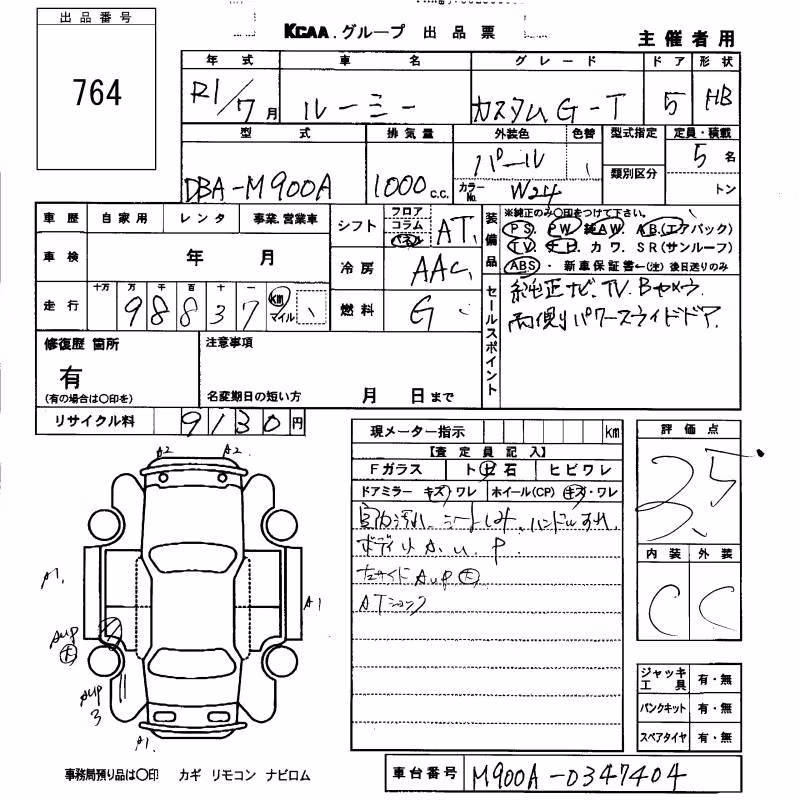 出品番号
764
KCAA.グループ 出品票
主催者用
年式 車名 グレード ドア 形状
R1/7月 ルーミー カスタムG-T 5 HB
型式 排気量 外装色 色替 型式指定 定員・積載
DBA-M900A 1000c.c. パール 類別区分 5名
カラーNo. W24 トン
車歴 自家用 レンタ 事業.営業車
シフト フロア コラム パネル AT
装備品 ※純正のみ○印をつけて下さい。
PS. PW. 純AW. AB.(エアバック)
TV. ナビ. カワ. SR(サンルーフ)
ABS・新車保証書←(注)後日送りのみ
車検 年 月
冷房 AAC
走行 十万 万 千 百 十 一
98837 km マイル
燃料 G
セールスポイント
純正ナビ.TV.Bカメラ.
両側パワースライドドア.
修復歴 箇所
有
(有の場合は○印を)
注意事項
名変期日の短い方 月 日まで
リサイクル料 9130円
現メーター指示 km
【査定員記入】
Fガラス ト石 ヒビワレ
ドアミラー キズ・ワレ ホイール(CP) キズ・ワレ
室内汚れ.シートしみ.ハンドルすれ.
ボディリ A.U.P.
左サイド AUP 大
ATショック
評価点
3.5
内装 外装
C C
A2 A2
A1.
A1
AUP 大
AUP 3
A1.
ジャッキ工具 有・無
パンクキット 有・無
スペアタイヤ 有・無
事務局預り品は○印 カギ リモコン ナビロム
車台番号 M900A-0347404